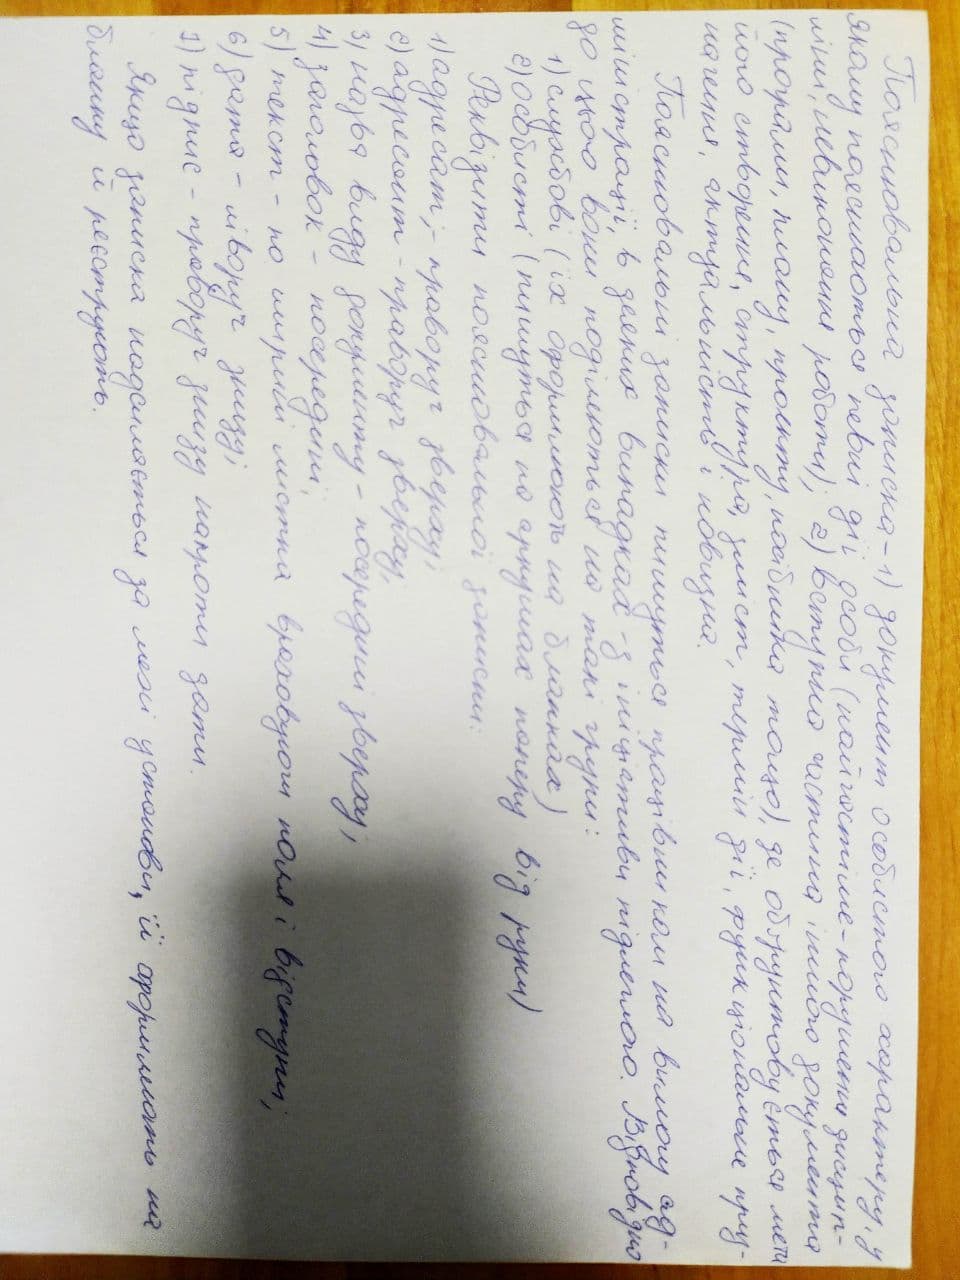 Пояснювальна записка – 1) документ особистого характеру, у
якому пояснюються певні дії особи (найчастіше – порушення дисцип-
ліни, невиконання роботи); 2) вступна частина іншого документа
(програми, плану, проєкту, посібника тощо), де обґрунтовується мета
його створення, структура, зміст, термін дії, функціональне приз-
начення, актуальність і новизна.
Пояснювальні записки пишуться працівником на вимогу ад-
міністрації, в деяких випадках – з ініціативи підлеглого. Відповідно
до цього вони поділяються на такі групи:
1) службові (їх оформлюють на бланках)
2) особисті (пишуться на аркушах паперу від руки)
Реквізити пояснювальної записки:
1) адресат; – праворуч зверху;
2) адресант – праворуч зверху;
3) назва виду документу – посередині зверху;
4) заголовок – посередині;
5) текст – по ширині листка враховуючи поля і відступи;
6) дата – ліворуч знизу;
7) підпис – праворуч знизу напроти дати.
Якщо записка надсилається за межі установи, її оформлюють на
бланку й реєструють.